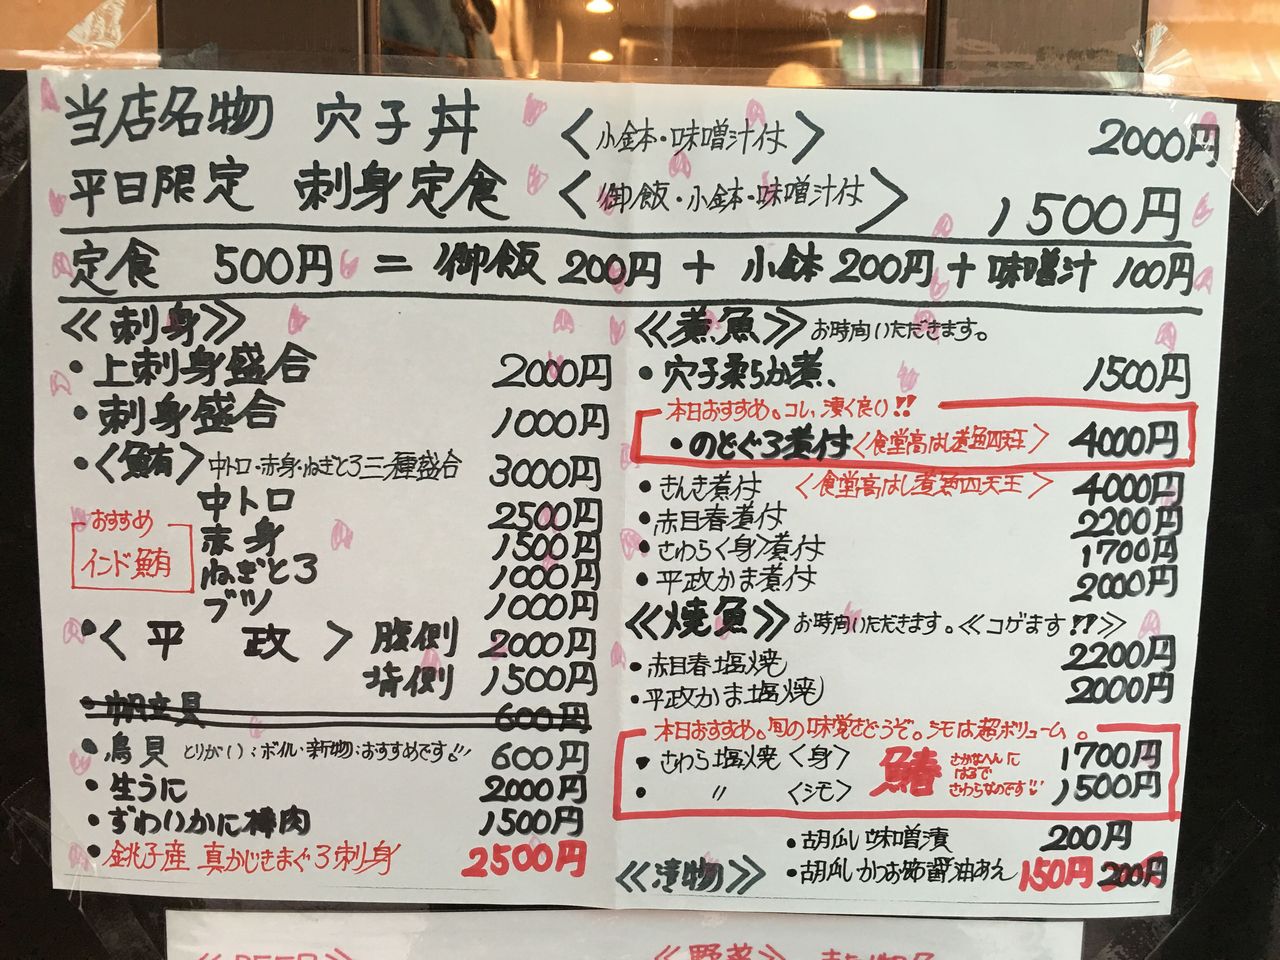 当店名物 穴子丼 〈小鉢本・味噌汁付〉 2000円
平日限定 刺身定食 〈御飯・小鉢本・味噌汁付〉 1500円
定食 500円 = 御飯 200円 + 小鉢 200円 + 味噌汁 100円
《刺身》
・上刺身盛合 2000円
・刺身盛合 1000円
・〈鮪〉中トロ・赤身・ねぎとろ三種盛合 3000円
中トロ 2500円
赤身 1500円
ねぎとろ 1000円
ブツ 1000円
おすすめ
インド鮪
・〈平政〉腹側 2000円
背側 1500円
・帆立貝 600円
・鳥貝 とりがい:ボイル・新物:おすすめです!! 600円
・生うに 2000円
・ずわいかに棒肉 1500円
・銚子産 真かじきまぐろ刺身 2500円
《煮魚》お時間いただきます。
・穴子柔らか煮、 1500円
本日おすすめ。コレ、凄く良い!!
・のどぐろ煮付〈食堂高はし煮魚四天王〉 4000円
・きんき煮付 〈食堂高はし煮魚四天王〉 4000円
・赤目春煮付 2200円
・さわら〈身〉煮付 1700円
・平政かま煮付 2000円
《焼魚》お時間いただきます。《コゲます!?》
・赤目春塩焼 2200円
・平政かま塩焼 2000円
本日おすすめ。旬の味覚をどうぞ。シモは超ボリューム。
・さわら塩焼〈身〉 1700円
・ 〃 〈シモ〉 1500円
鰆
さかなへんに
はるで
さわらなのです!!
《漬物》
・胡瓜味噌漬 200円
・胡瓜かつお節醤油あえ 150円 200円
《BEER》
《野菜》